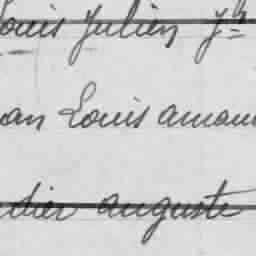 ouis Julien Jh
an Louis Aman
dier Auguste